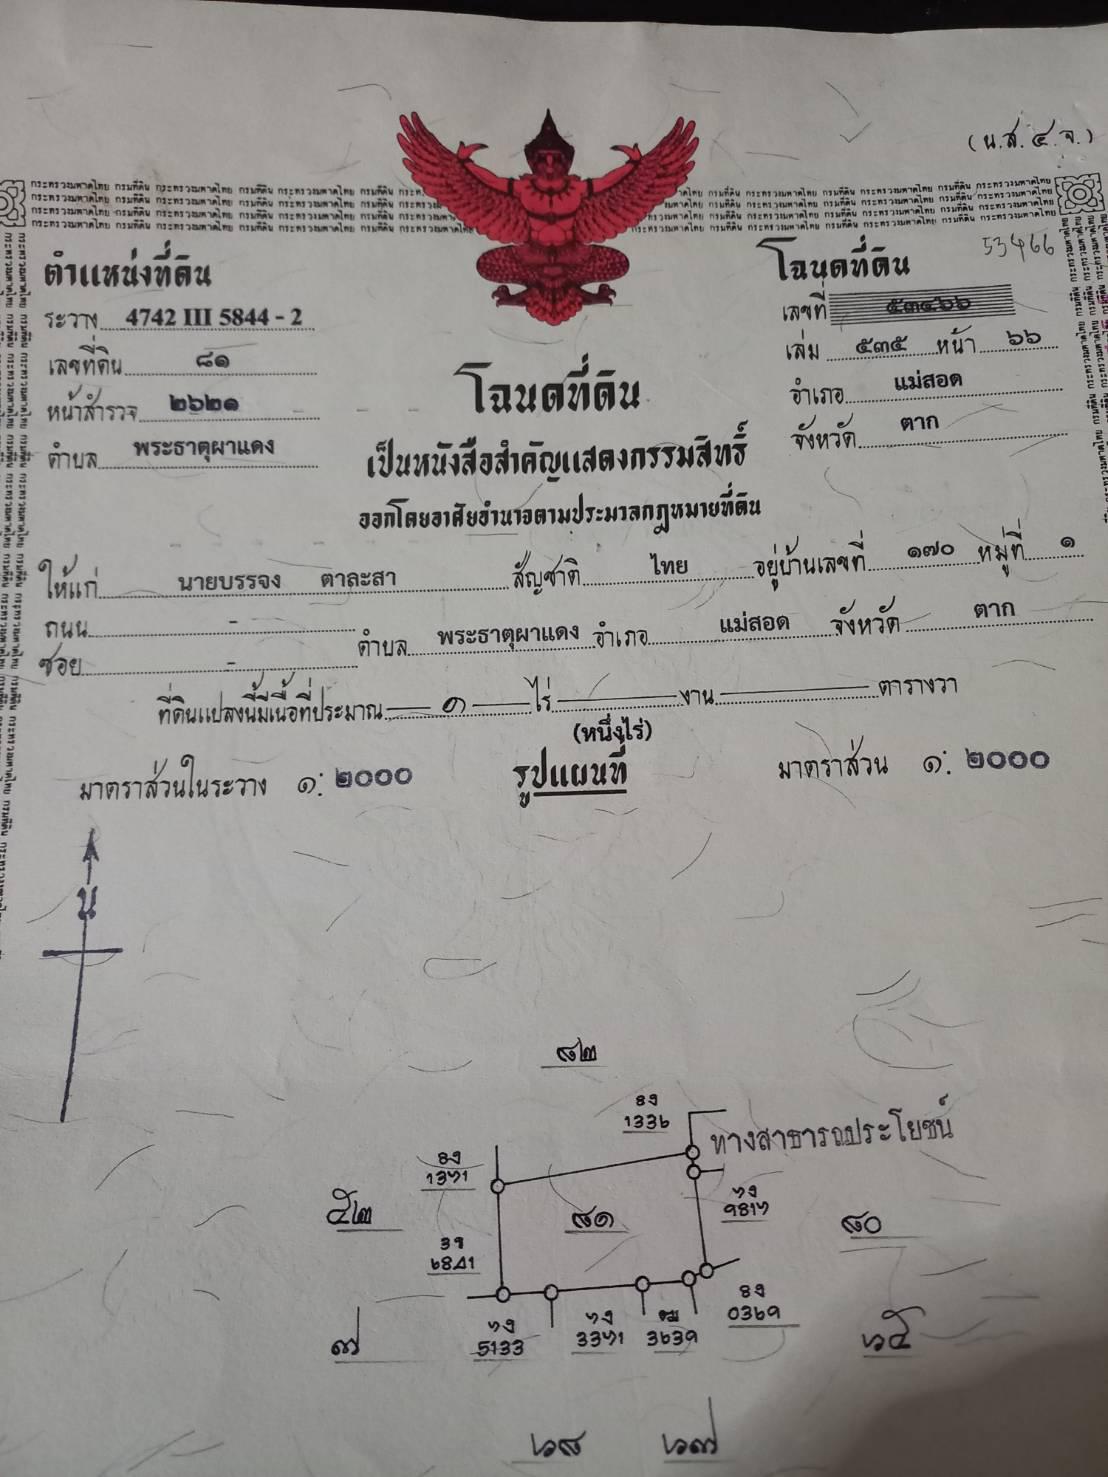 (น.ส. ๔ จ.)
กระทรวงมหาดไทย กรมที่ดิน กระทรวงมหาดไทย กรมที่ดิน กระทรวงมหาดไทย กรมที่ดิน
ตำแหน่งที่ดิน
ระวาง 4742 III 5844 - 2
เลขที่ดิน ๘๑
หน้าสำรวจ ๒๖๒๑
ตำบล พระธาตุผาแดง
โฉนดที่ดิน 53466
เลขที่ ๕๓๔๖๖
เล่ม ๕๓๕ หน้า ๖๖
อำเภอ แม่สอด
จังหวัด ตาก
โฉนดที่ดิน
เป็นหนังสือสำคัญแสดงกรรมสิทธิ์
ออกโดยอาศัยอำนาจตามประมวลกฎหมายที่ดิน
ให้แก่ นายบรรจง ตาละสา สัญชาติ ไทย อยู่บ้านเลขที่ ๑๗๐ หมู่ที่ ๑
ถนน -
ซอย -
ตำบล พระธาตุผาแดง อำเภอ แม่สอด จังหวัด ตาก
ที่ดินแปลงนี้มีเนื้อที่ประมาณ ๑ ไร่ งาน ตารางวา
(หนึ่งไร่)
มาตราส่วนในระวาง ๑: ๒๐๐๐
รูปแผนที่
มาตราส่วน ๑: ๒๐๐๐
น
๘๒
ทางสาธารณประโยชน์
๕๒
๘๑
๘๐
๗
5133
๖๕
๖๘ ๖๗